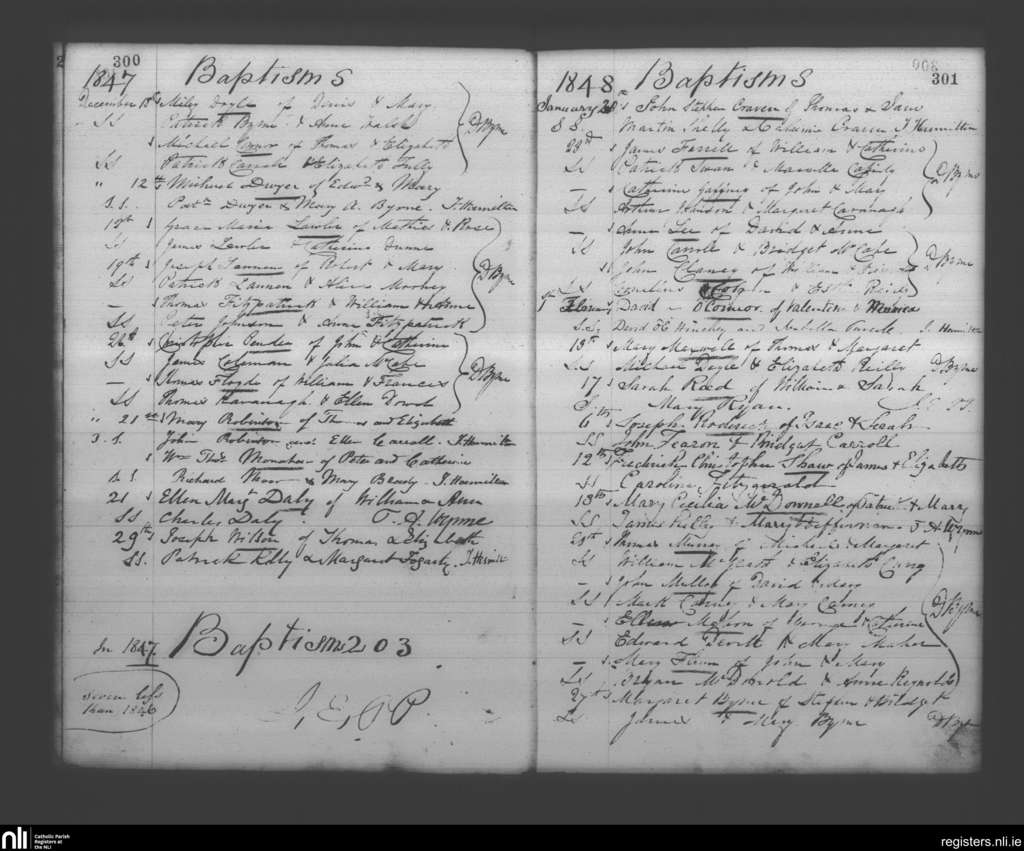 300
1847 Baptisms
December 18th Miley Doyle of Denis & Mary
SS Patrick Byrne & Anne Walsh D Byrne
s Michael Connor of Thomas & Elizabeth
SS Patrick & Elizabeth
" 12th Michael Dwyer of Edwd & Mary
S.S. Dwyer & Mary A. Byrne. J. Hamilton
19th s Grace Maria Lawler of Mathew & Rose
SS James Lawler & Catherine Dunne
19th s Joseph Lannon of Robert & Mary
SS Patrick Lannon & Alice Moorhey D Byrne
— s Thomas Fitzpatrick & William & Anne
SS Peter Johnson & Anne Fitzpatrick
26th s Christopher of John & Catherine
SS James Coleman & Julia McCabe
— s Thomas Floyde of William & Frances D Byrne
SS Thomas Kavanagh & Ellen Dowd
" 21st s Mary Robinson of Thomas and Elizabeth
S. S. John Robinson and Ellen Carroll. J. Hamilton
s Wm Thos Monahan of Peter and Catherine
S. S Richard & Mary Beady. J. Hamilton
21 s Ellen Margt Daly of William & Ann
SS Charles Daly. T. A. Wynne
29th s Joseph Wilson of Thomas & Elizabeth
SS. Patrick Kelly & Margaret Fogarty. J. Hamilton
In 1847 Baptisms 203
seven left
than 1846
J, E, P P.
301
1848 Baptisms
January 28 s John Stephen Craven of Thomas & Jane
S S. Martin Skelly & Catherine Craven J Hamilton
23rd s James Farrell of William & Catherine
SS Patrick Swan & D Byrne
— s Catherine of John & Mary
SS Arthur Johnson & Margaret Cavanagh
— s Anne Lee of David & Anne
SS John Carroll & Bridget McCabe
s John Clancy of William & D Byrne
SS Cornelius & Reid
1 s David O'Connor of Valentine &
S.S. David and Isabella J. Hamilton
13th s Mary Maxwell of Thomas & Margaret
SS Michael Doyle & Elizabeth Reilly D Byrne
17 s Sarah Reed of William & Sarah
S. Mary Ryan.
6th s Joseph Roderick of Isaac & Sarah
SS John Fearon & Bridget Carroll
12th s Fredrick Christopher Shaw of James & Elizabeth
SS Caroline Fitzgerald
18th s Mary Cecilia McDonnell of Patrk & Mary
SS James Kelly & Mary Heffernan T A Wynne
20th s Thomas Murray of Michael & Margaret
SS William McGrath & Elizabeth
— s John Mullen of David & Mary
SS Mark & Mary D Byrne
— s Ellen of George & Catherine
SS Edward & Mary Maher
— s Mary of John & Mary
SS Bryan McDonold & Anne Reynolds
27th s Margaret Byrne of Stephen & Bridget
SS James & Mary Byrne D Byrne
nli Catholic Parish
Registers at
the NLI
registers.nli.ie